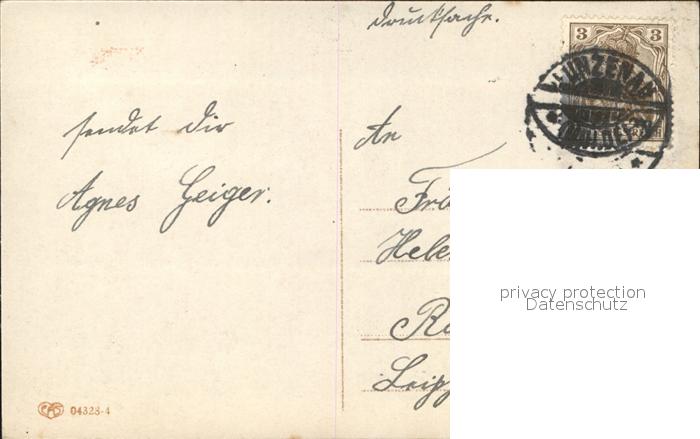 Drucksache.
3 3
sendet Dir
Agnes Geiger.
An
Frä
Hele
Leipz
privacy protection
Datenschutz
04328-4